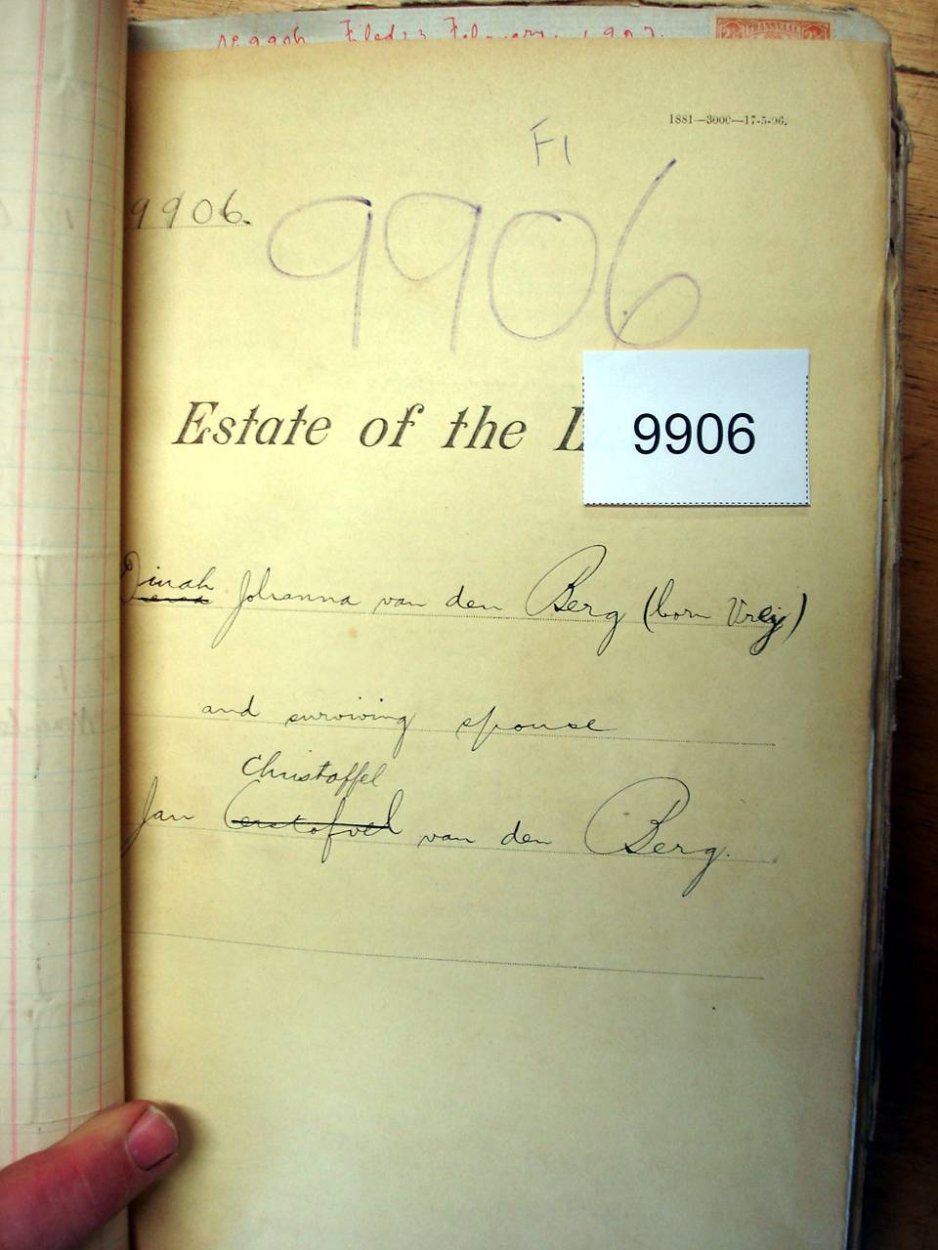 9906 Filed 23 February 1907.
TRANSVAAL
1881—3000—17-5-06.
F1
9906.
9906
Estate of the L
9906
Dinah
Johanna van den Berg (born Vrey)
and surviving spouse
Christoffel
Jan Cristofvel van den Berg.